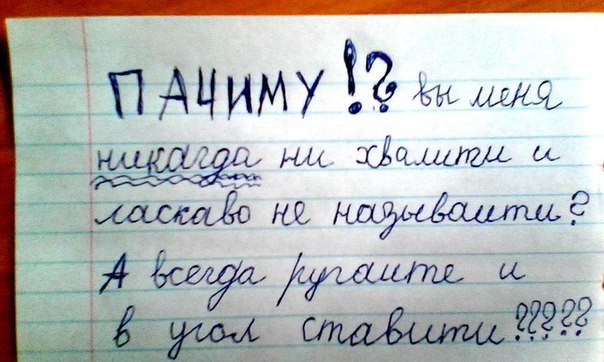 ПАЧИМУ!? вы меня
никагда ни хвалити и
ласкаво не называити?
А всегда ругаите и
в угол ставити?????